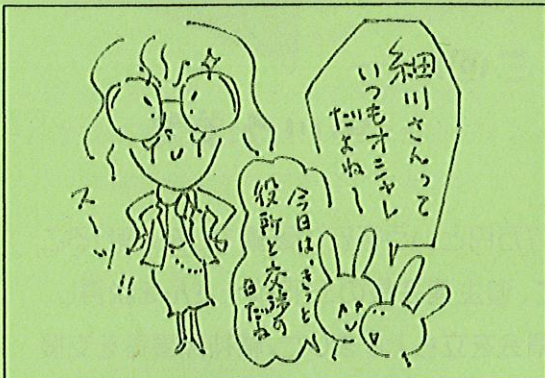 細川さんって
いつもオシャレ
だよね〜
今日は、きっと
役所と交渉の
日だね
スーツ!!